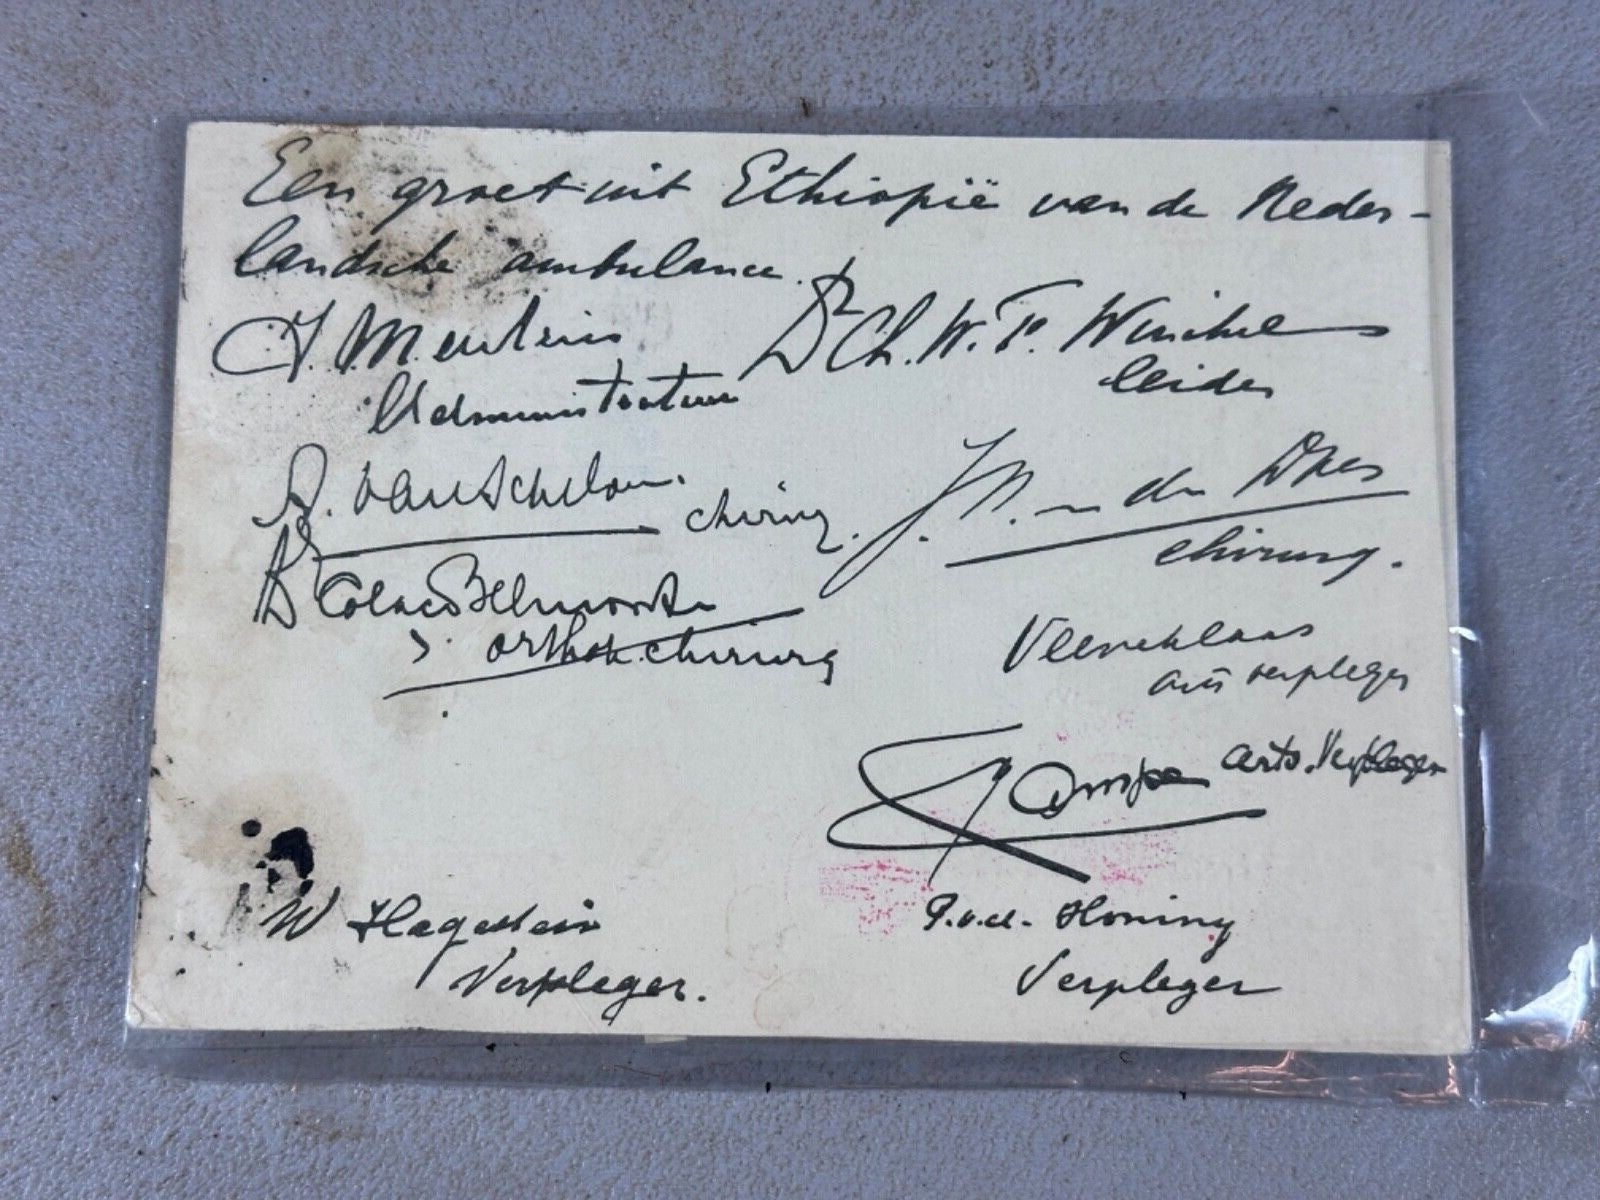 Een groet uit Ethiopië van de Neder-
landsche ambulance.
J. M. Meulens
Administrateur
Dr Ch. W. F. Winckel
leider
A. van Schelven.
chirurg.
J. N. v. d.
chirurg.
Dr Colaço Belmonte
orthop. chirurg
Veeneklaas
arts verpleger
arts. Verpleger
W Hagestein
Verpleger.
P. v. d. Honing
Verpleger